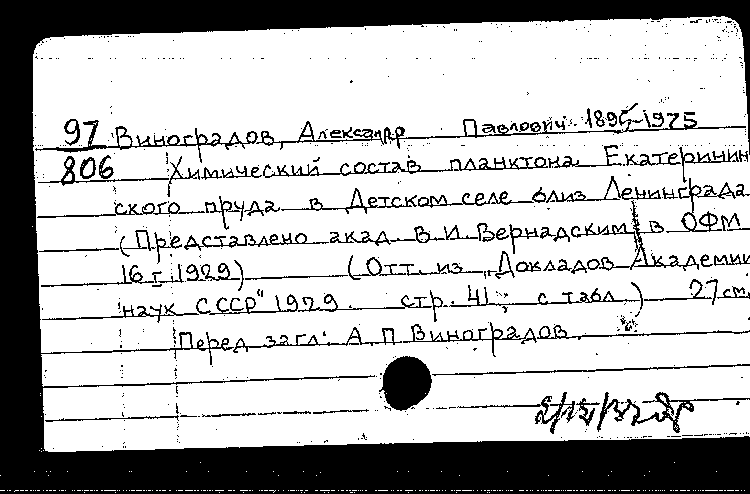 97 Виноградов, Александр Павлович 1895-1975
806 Химический состав планктона Екатеринин
ского пруда в Детском селе близ Ленинграда
(Представлено акад. В. И. Вернадским в ОФМ
16 г. 1929) (Отт. из „Докладов Академии
наук СССР" 1929. стр. 41; с табл.) 27 см.
Перед загл: А. П. Виноградов.